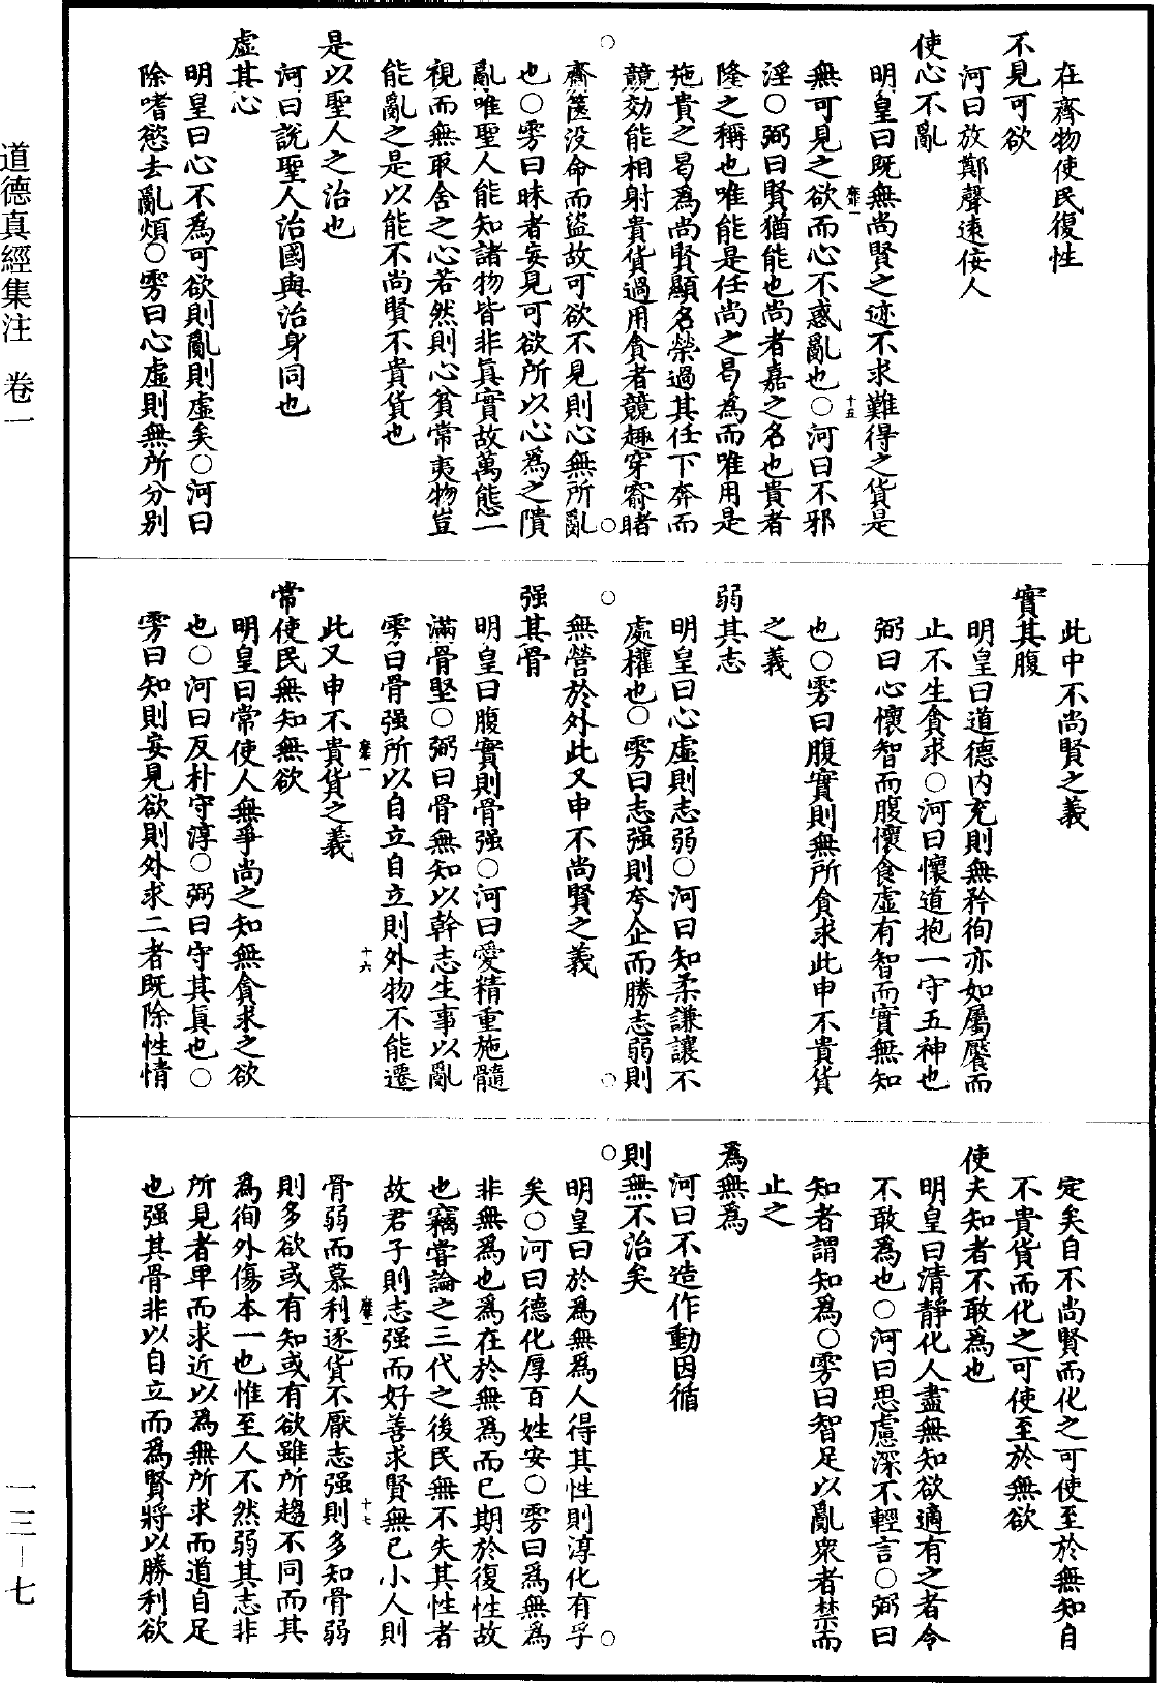 在齊物使民復性
不見可欲
河曰放鄭聲遠佞人
使心不亂
明皇曰既無尚賢之迹不求難得之貨是
無可見之欲而心不惑亂也○河曰不邪
淫○弼曰賢猶能也尚者嘉之名也貴者
隆之稱也唯能是任尚之曷為而唯用是
施貴之曷為尚賢顯名榮過其任下奔而
競効能相射貴貨過用貪者競趣穿窬睹
齋篋没命而盜故可欲不見則心無所亂
也○雱曰昧者妄見可欲所以心為之隤
亂唯聖人能知諸物皆非真實故萬態一
視而無取舍之心若然則心貧常夷物豈
能亂之是以能不尚賢不貴貨也
是以聖人之治也
河曰説聖人治國與治身同也
虛其心
明皇曰心不為可欲則亂則虛矣○河曰
除嗜慾去亂煩○雱曰心虛則無所分别
此中不尚賢之義
實其腹
明皇曰道德内充則無矜徇亦如屬饜而
止不生貪求○河曰懷道抱一守五神也
弼曰心懷智而腹懷食虛有智而實無知
也○雱曰腹實則無所貪求此申不貴貨
之義
弱其志
明皇曰心虛則志弱○河曰知柔謙讓不
處權也○雱曰志强則夸企而勝志弱則
無營於外此又申不尚賢之義
强其骨
明皇曰腹實則骨强○河曰愛精重施髓
滿骨堅○弼曰骨無知以幹志生事以亂
雱曰骨强所以自立自立則外物不能遷
此又申不貴貨之義
常使民無知無欲
明皇曰常使人無爭尚之知無貪求之欲
也○河曰反朴守淳○弼曰守其真也○
雱曰知則妄見欲則外求二者既除性情
定矣自不尚賢而化之可使至於無知自
不貴貨而化之可使至於無欲
使夫知者不敢為也
明皇曰清靜化人盡無知欲適有之者令
不敢為也○河曰思慮深不輕言○弼曰
知者謂知為○雱曰智足以亂衆者禁而
止之
為無為
河曰不造作動因循
則無不治矣
明皇曰於為無為人得其性則淳化有孚
矣○河曰德化厚百姓安○雱曰為無為
非無為也為在於無為而已期於復性故
也竊嘗論之三代之後民無不失其性者
故君子則志强而好善求賢無已小人則
骨弱而慕利逐貨不厭志强則多知骨弱
則多欲或有知或有欲雖所趨不同而其
為徇外傷本一也惟至人不然弱其志非
所見者卑而求近以為無所求而道自足
也强其骨非以自立而為賢將以勝利欲
十五
十六
十七
道德真經集注　卷一
一三—七